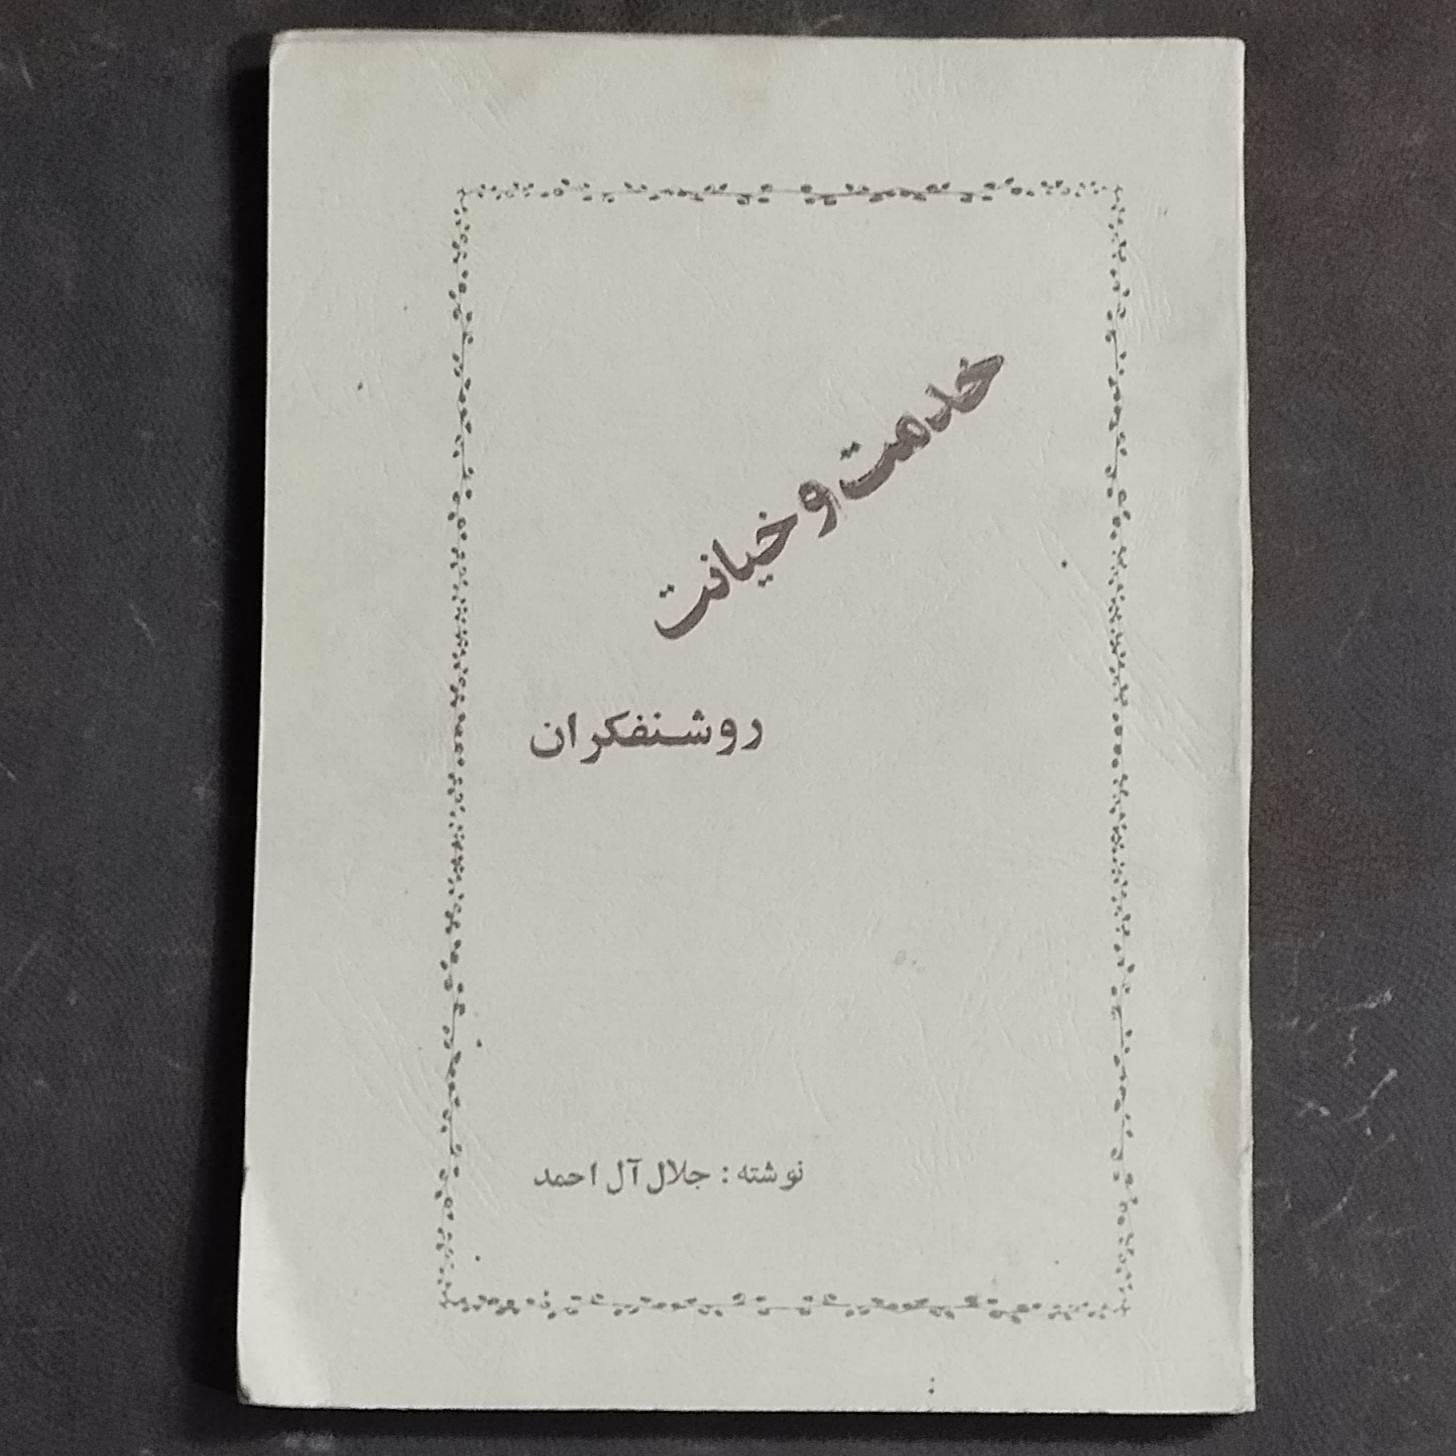 خدمت و خیانت
روشنفکران
نوشته : جلال آل احمد